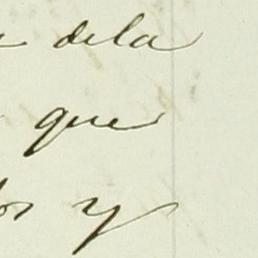 dela
que
y